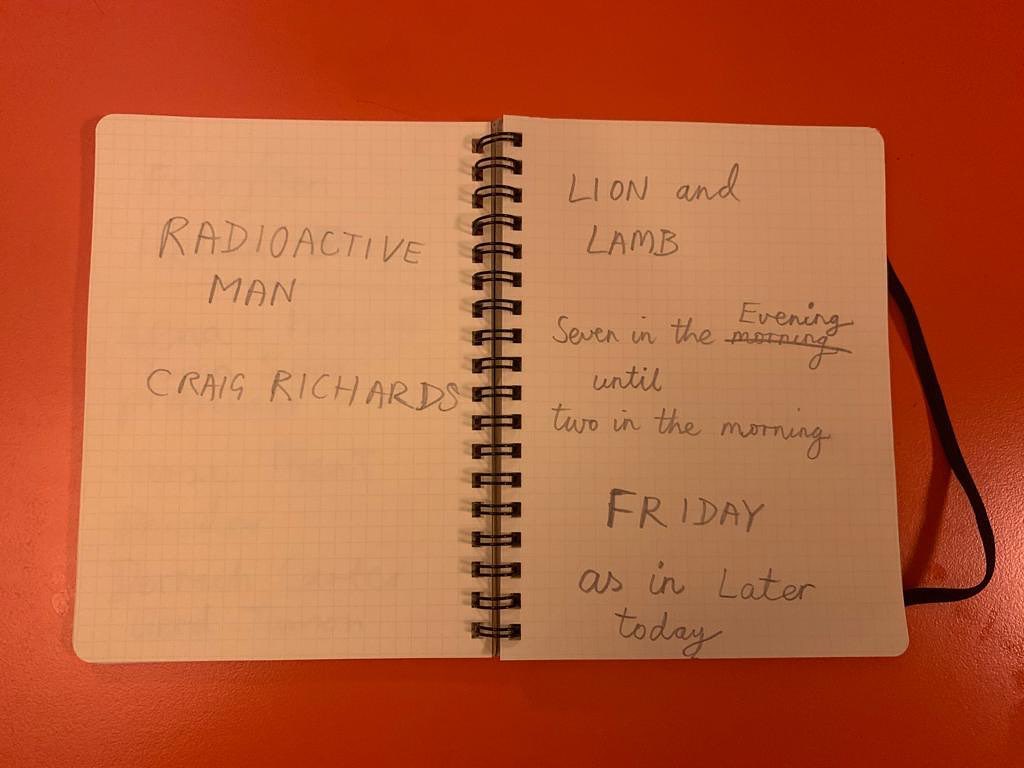 RADIOACTIVE
MAN
CRAIG RICHARDS
LION and
LAMB
Evening
Seven in the morning
until
two in the morning
FRIDAY
as in Later
today